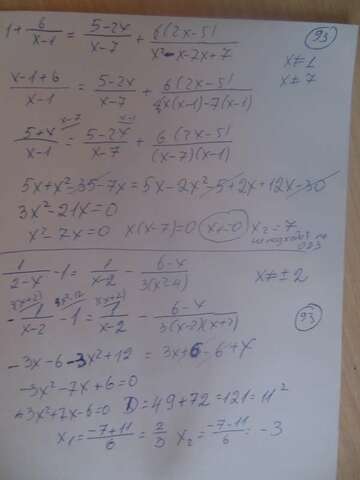 1 + 6/(x-1) = (5-2x)/(x-7) + 6(2x-5)/(x²-x-7x+7)
93
x≠1
x≠7
(x-1+6)/(x-1) = (5-2x)/(x-7) + 6(2x-5)/(x(x-1)-7(x-1))
(5+x)/(x-1) = (5-2x)/(x-7) + 6(2x-5)/((x-7)(x-1))
5x+x²-35-7x = 5x-2x²-5+2x+12x-30
3x²-21x=0
x²-7x=0 x(x-7)=0 x=0 x₂=7
не подходит по ОДЗ
1/(2-x) -1 = 1/(x-2) - (6-x)/(3(x²-4))
x≠±2
93
-1/(x-2) -1 = 1/(x-2) - (6-x)/(3(x-2)(x+2))
-3x-6-3x²+12 = 3x+6-6+x
-3x²-7x+6=0
3x²+7x-6=0 D=49+72=121=11²
x₁=(-7+11)/6=2/3 x₂=(-7-11)/6=-3